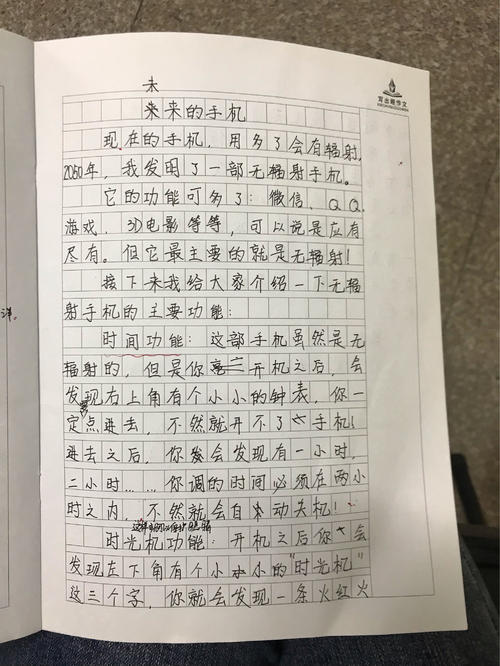 写出新作文
未
来来的手机
现在的手机，用多了会有辐射，
2050年，我发图了一部无辐射手机。
它的功能可多了：微信、QQ、
游戏、3D电影等等，可以说是应有
尽有。但它最主要的就是无辐射！
接下来我给大家介绍一下无辐
洋。
射手机的主要功能：
时间功能：这部手机虽然是无
辐射的，但是你开机之后，会
发现右上角有个小小的钟表，你一
定点进去，不然就开不了手机！
进去之后，你会发现有一小时，
二小时……你调的时间必须在两小
时之内，不然就会自动关机！
这样可以保护眼睛
时光机功能：开机之后你会
发现左下角有个小小的“时光机”
这三个字，你就会发现一条火红火